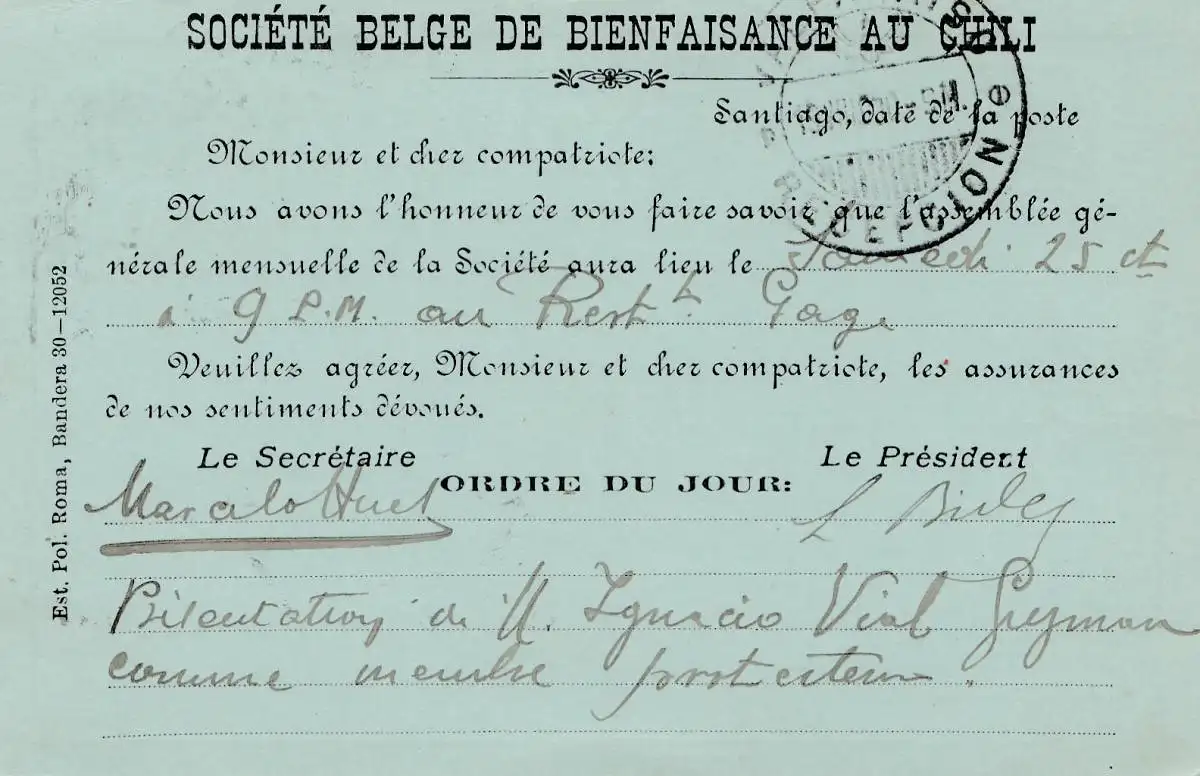 SOCIÉTÉ BELGE DE BIENFAISANCE AU CHILI
Santiago, date de la poste
Monsieur et cher compatriote:
Nous avons l'honneur de vous faire savoir que l'assemblée gé-
nérale mensuelle de la Société aura lieu le Samedi 25 ct
à 9 P.M. au Rest.t Gage
Veuillez agréer, Monsieur et cher compatriote, les assurances
de nos sentiments dévoués.
Le Secrétaire Le Président
ORDRE DU JOUR:
Marcelo Huet L
Présentation de M. Ignacio Vial
comme membre protecteur.
Est. Pol. Roma, Bandera 30—12052